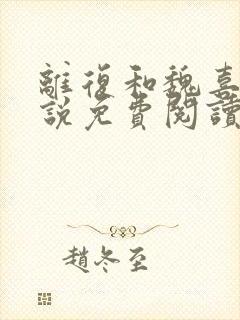 離復和魏喜
說免費閱讀
趙冬至